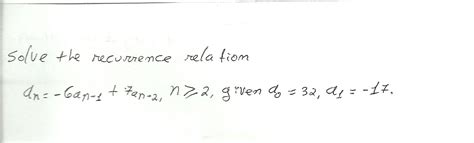 Solve the recurrence relation
aₙ = -6aₙ₋₁ + 7aₙ₋₂, n ≥ 2, given a₀ = 32, a₁ = -17.